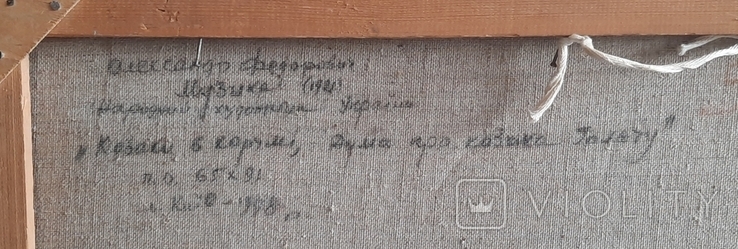 Олександр Федорович
Музыка (1921)
Народний художник України
„Козаки в корчмі, Дума про козака Голоту"
п.о. 65×81
м. Київ - 1998
VIOLITY